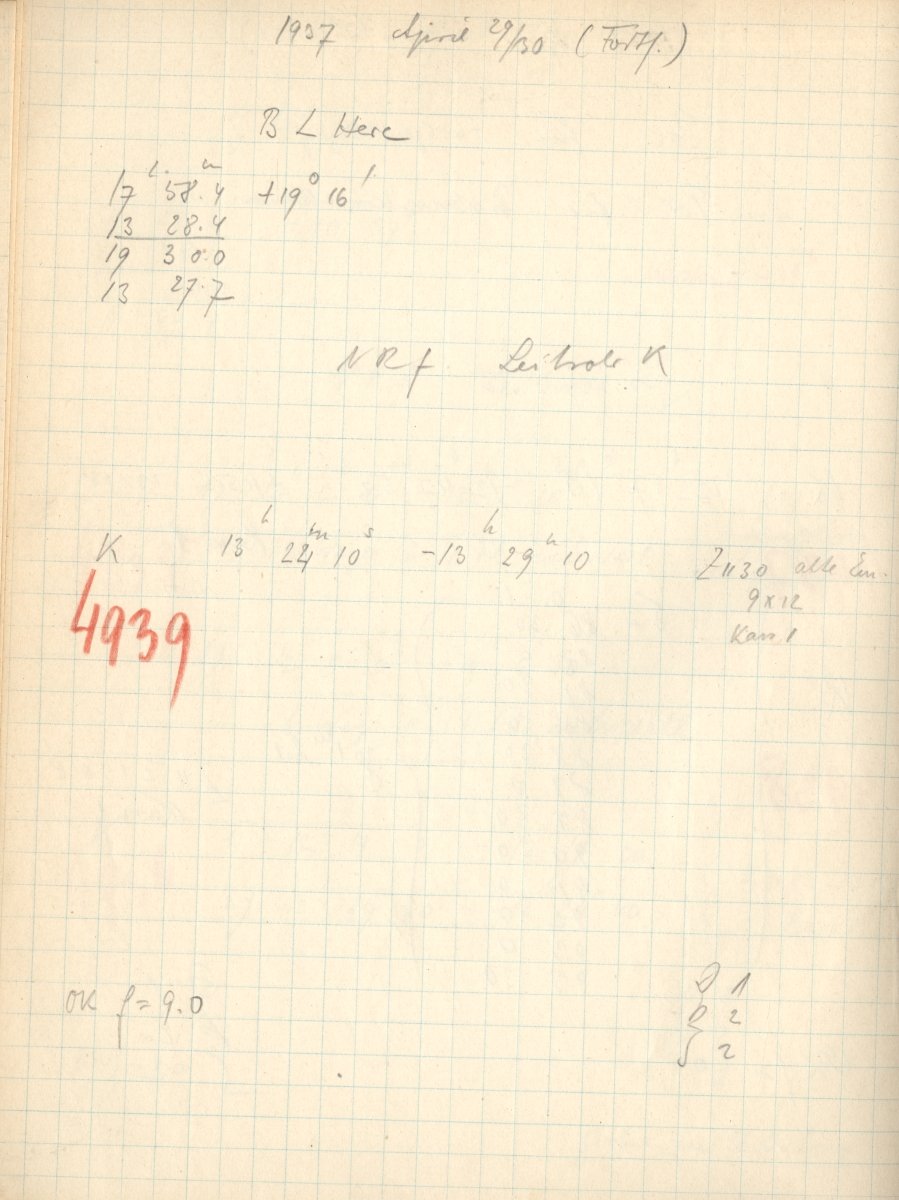 1937 April 29/30 (Forts.)
BL Herc
17h 58.4m +19° 16'
13 28.4
19 30.0
13 27.7
NRf Leitrohr K
K 13h 24m 10s -13h 29m 10 Zu 30 alte Em.
4939 9x12
Kass. 1
OK f = 9.0
1
2
2